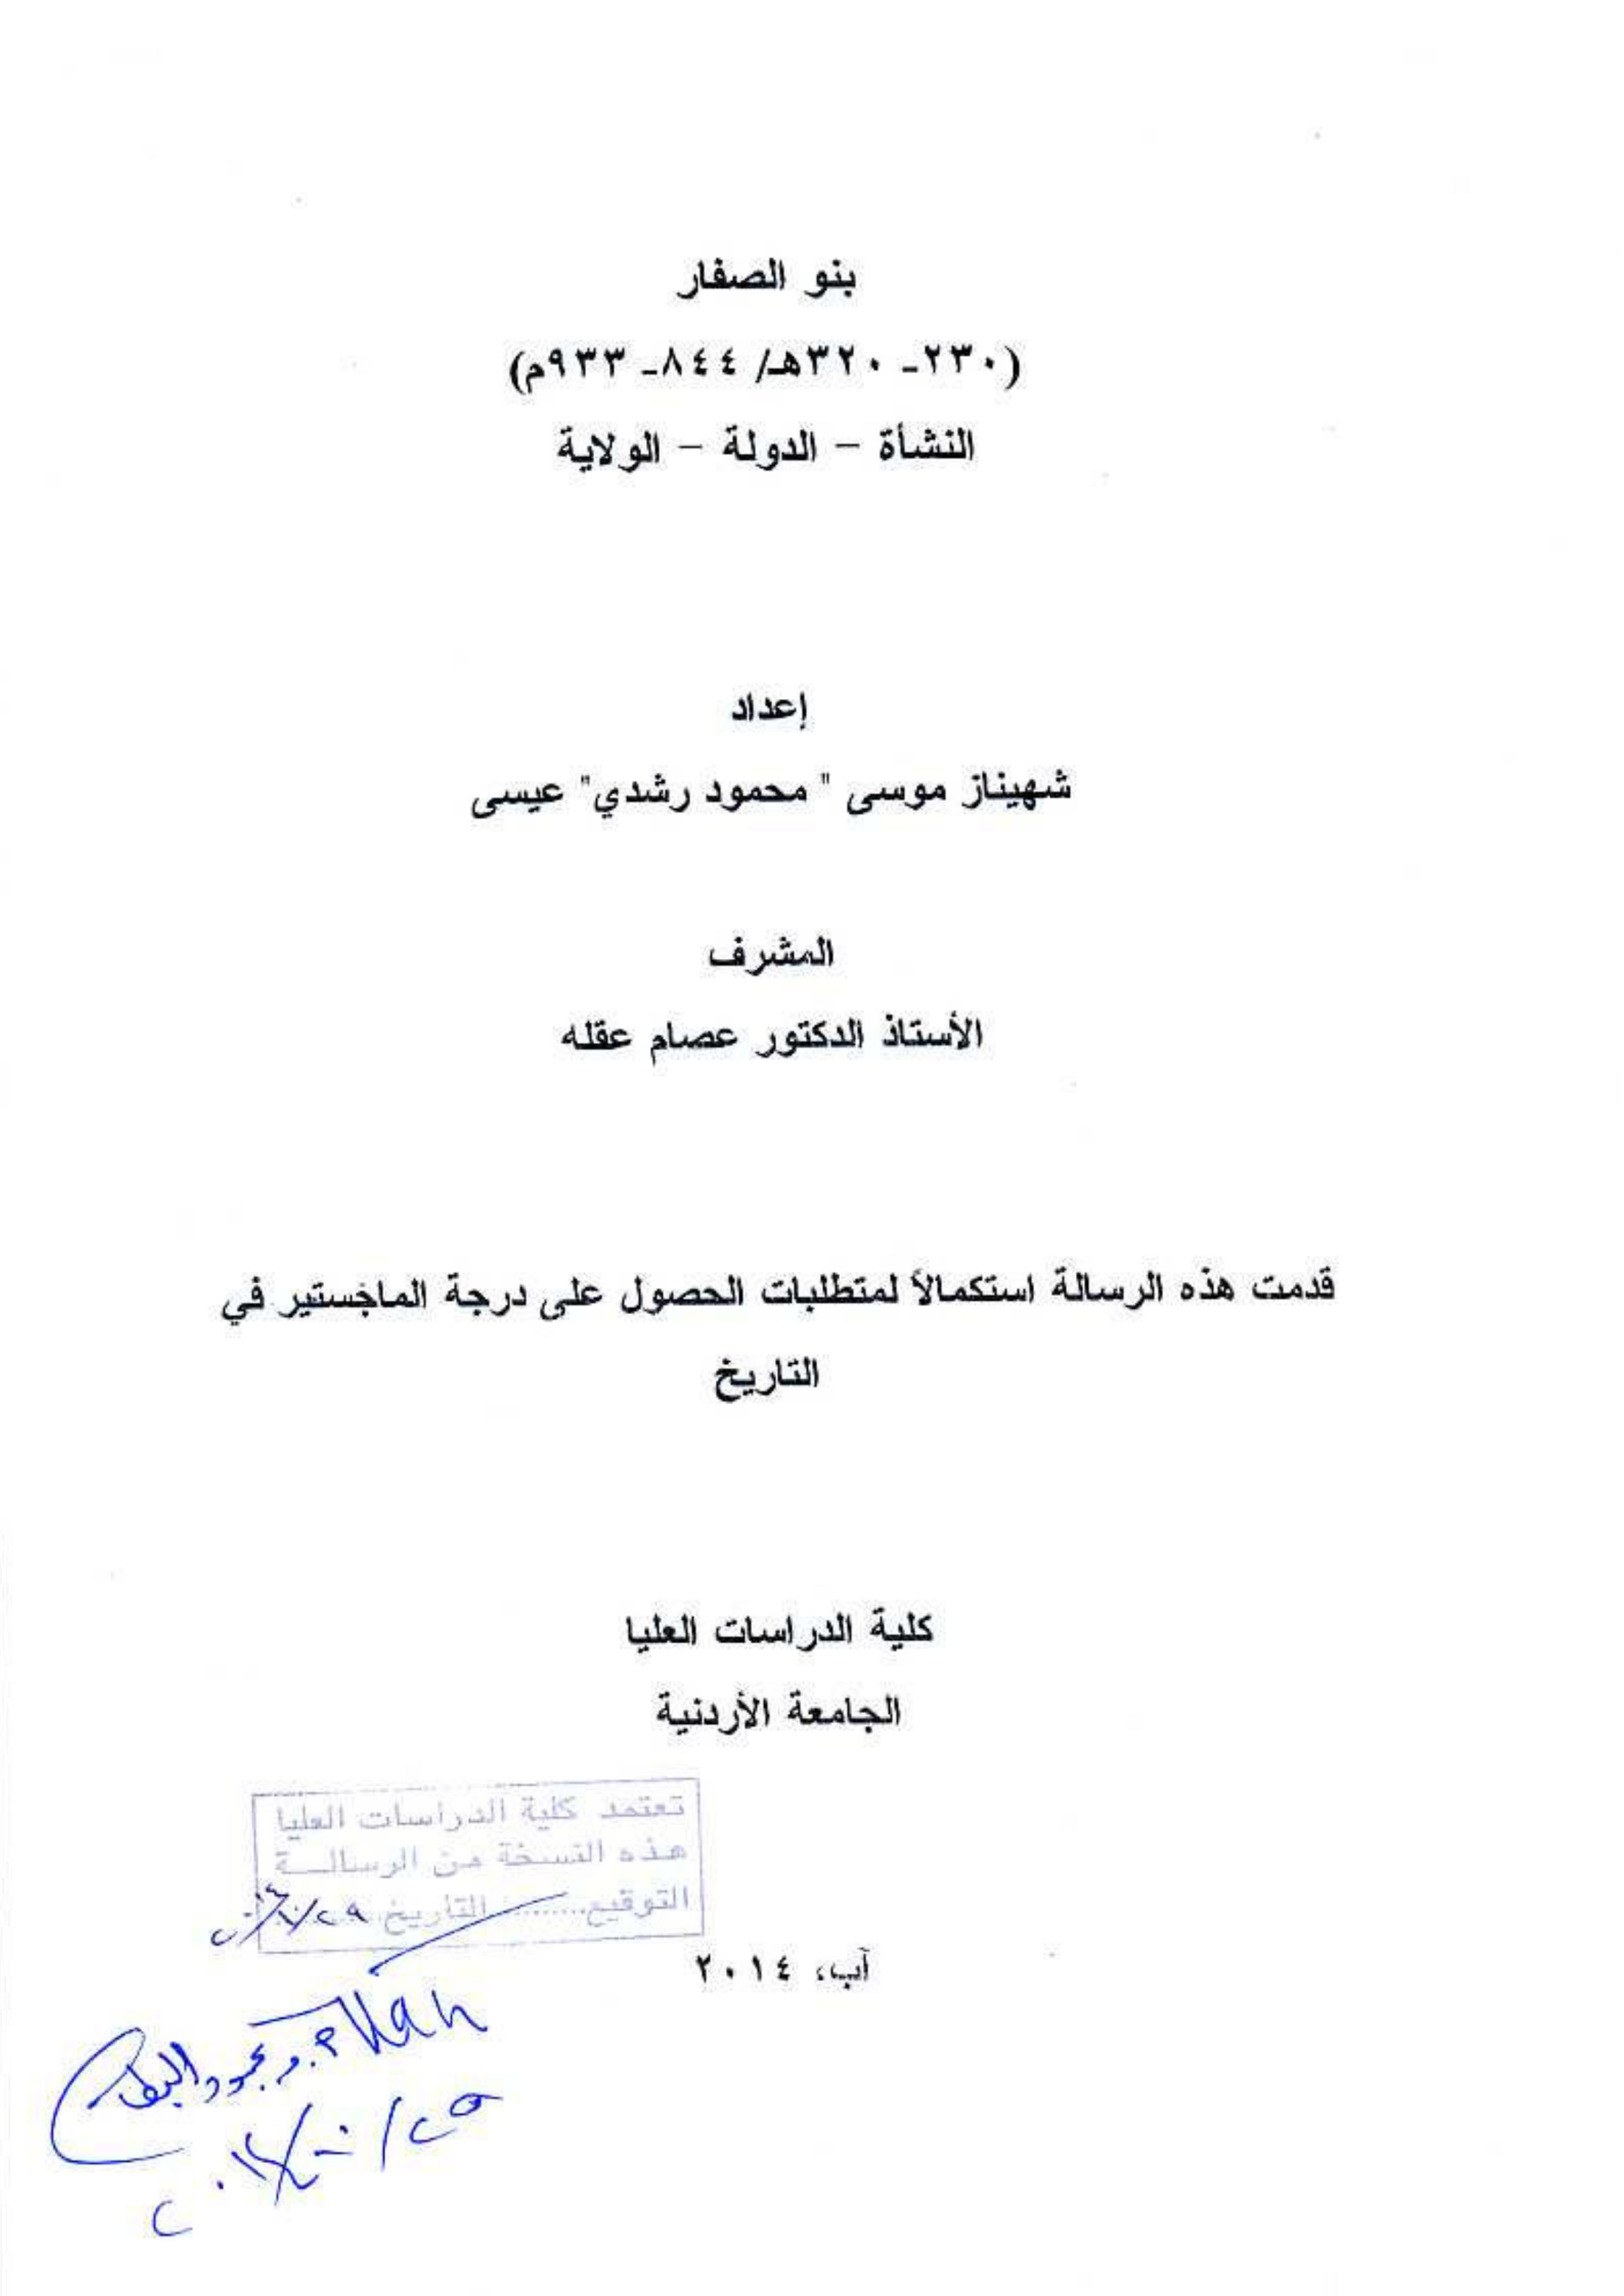 بنو الصفار
(٢٣٠- ٣٢٠هـ/ ٨٤٤- ٩٣٣م)
النشأة – الدولة – الولاية
إعداد
شهيناز موسى " محمود رشدي" عيسى
المشرف
الأستاذ الدكتور عصام عقله
قدمت هذه الرسالة استكمالاً لمتطلبات الحصول على درجة الماجستير في
التاريخ
كلية الدراسات العليا
الجامعة الأردنية
تعتمد كلية الدراسات العليا
هذه النسخة من الرسالـــة
التوقيع......... التاريخ.........
آب، ٢٠١٤